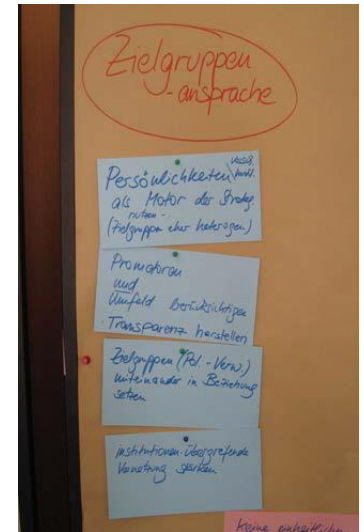 Zielgruppen
-ansprache
Persönlichkeiten
als Motor der Strateg.
nutzen -
(Zielgruppe eher heterogen)
Promotoren
und
Umfeld berücksichtigen
Transparenz herstellen
Zielgruppen (Pol. - Verw)
miteinander in Beziehung
setzen
institutionen-übergreifende
Vernetzung stärken
keine einheitliche